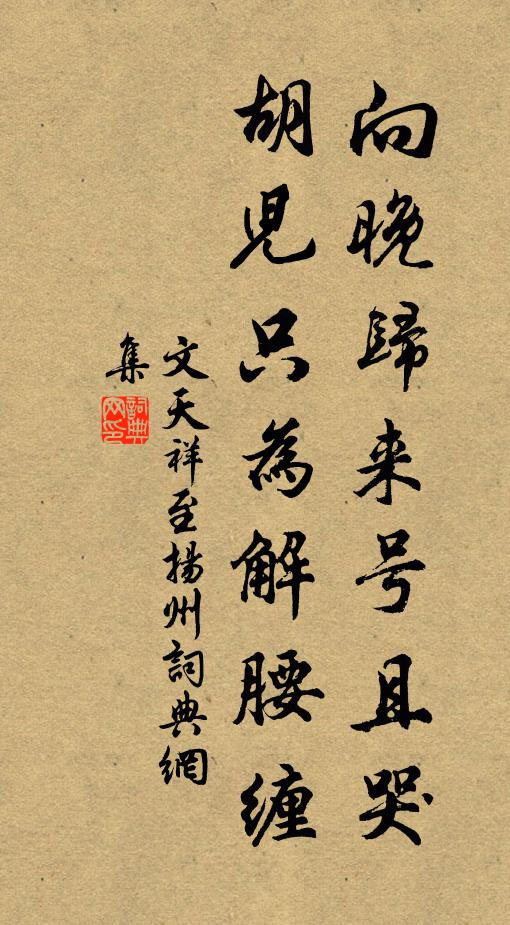 向晚歸来号且哭
胡児只為解腰纏
文天祥至揚州詞典網
集
詞典网印